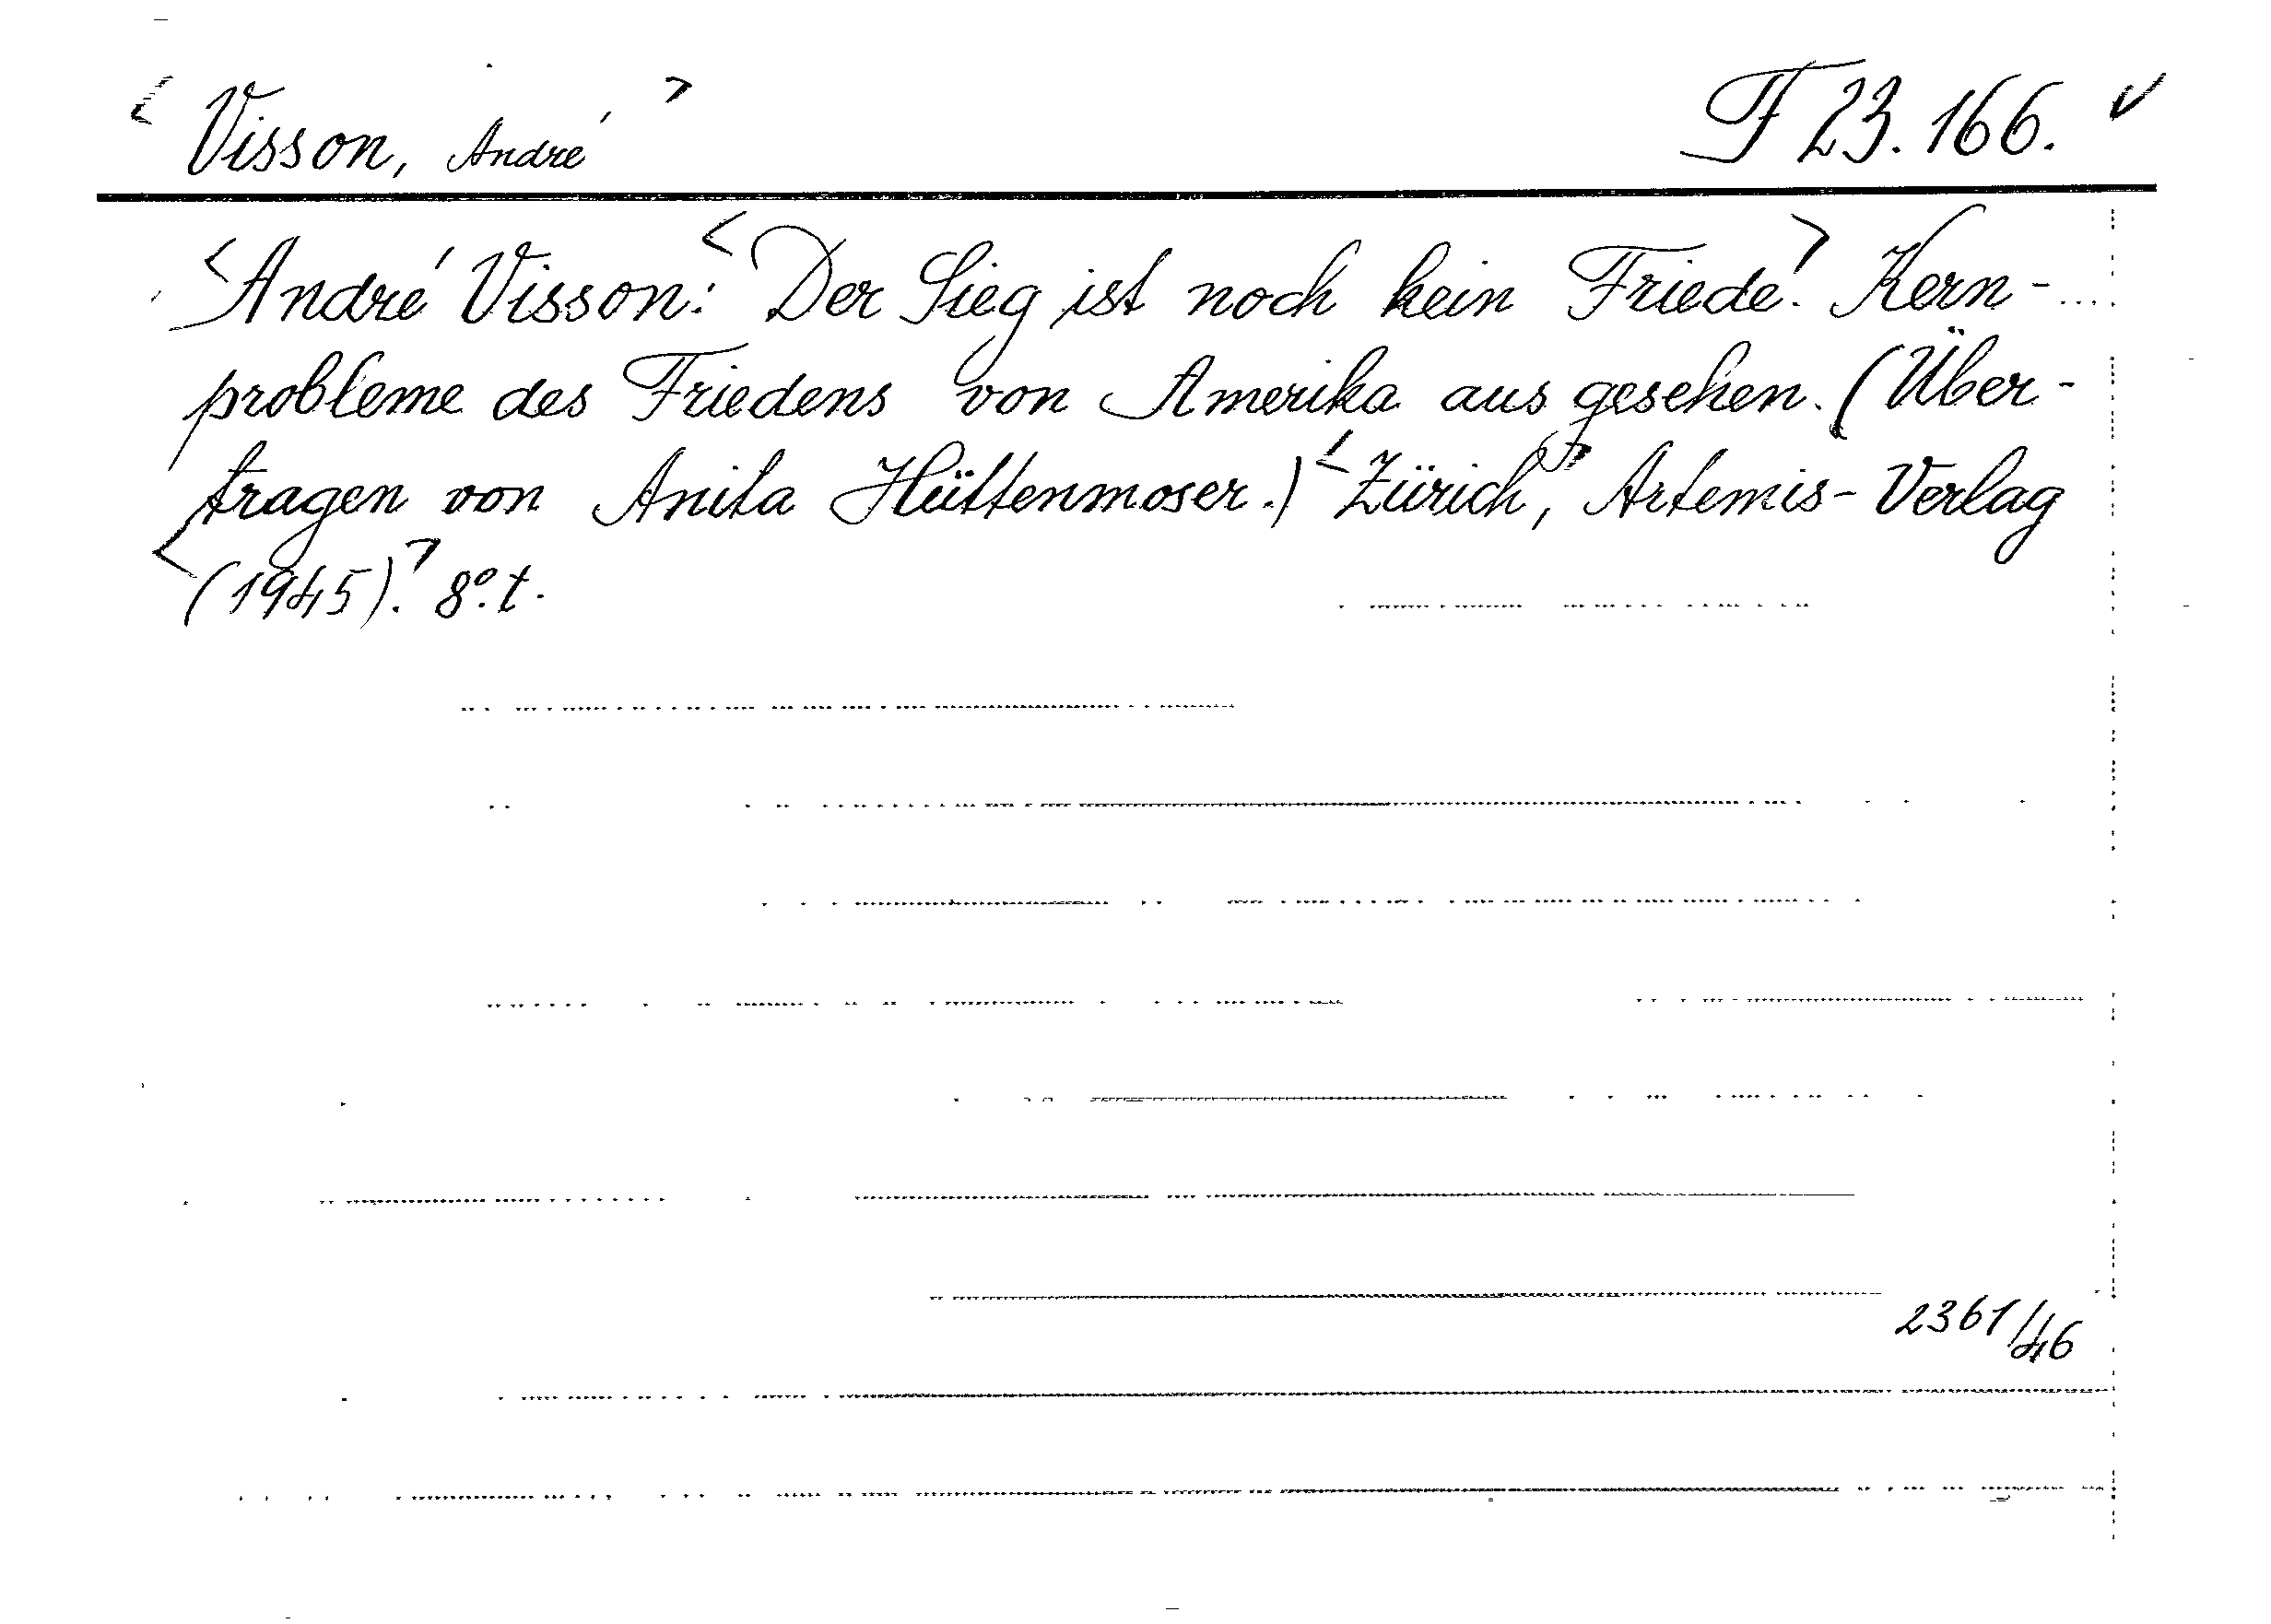 < Visson, André > F 23.166. ✓
<André Visson: <Der Sieg ist noch kein Friede>. Kern-
probleme des Friedens von Amerika aus gesehen. (Über-
tragen von Anita Hüttenmoser.) <Zürich>, Artemis-Verlag
<(1945).> 8°. t.
2361/46